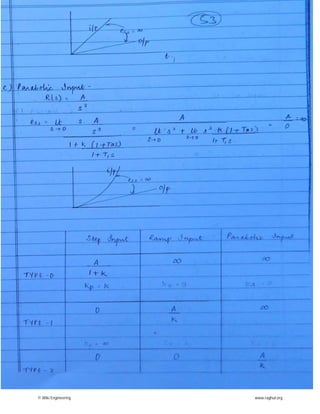 53
i/p
ess = ∞
o/p
t
c) Parabolic Input -
R(s) = A / s³
ess = Lt s→0 s · A / s³ / 1 + K (1+Tas) / 1+T1s = A / Lt s→0 s² + Lt s→0 s² K (1+Tas) / 1+T1s = A / 0 = ∞
i/p
ess = ∞
o/p
Step Input Ramp Input Parabolic Input
TYPE-0 A / 1+K ∞ ∞
Kp = K
TYPE-1 0 A / K ∞
TYPE-2 0 0 A / K
www.raghul.org